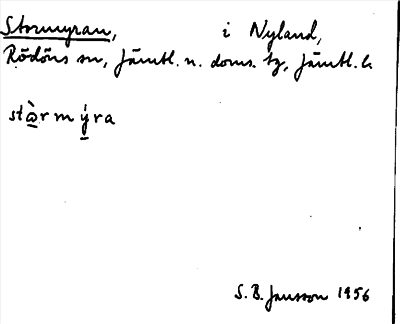 Stormyran, i Nyland,
Rödöns sn, Jämtl. n. doms. tg, Jämtl. l.
stὰ̲r m ý̲ r a
S. B. Jansson 1956